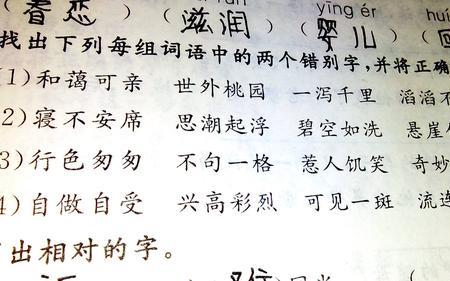 yīng ér huí
恋）（滋润）（婴儿）（
找出下列每组词语中的两个错别字,并将正确
1)和蔼可亲 世外桃园 一泻千里 滔滔不
2)寝不安席 思潮起浮 碧空如洗 悬崖
3)行色匆匆 不句一格 惹人饥笑 奇妙
4)自做自受 兴高彩烈 可见一斑 流连
出相对的字。